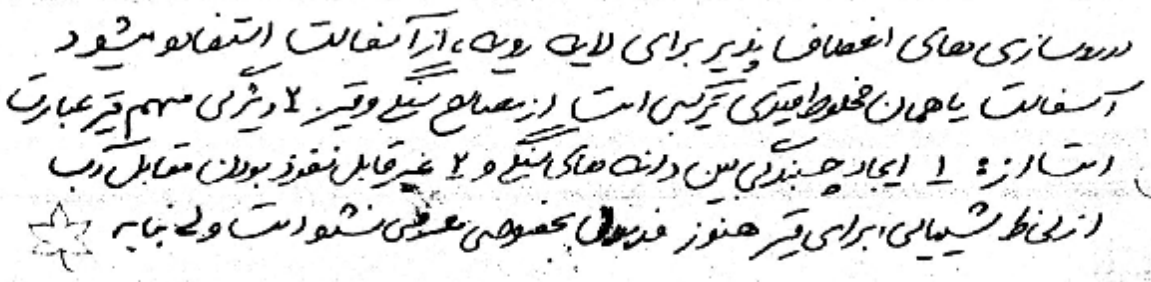 در روسازی های انعطاف پذیر برای لایه رویه، از آسفالت استفاده میشود
آسفالت یا همان مخلوط قیری ترکیبی است از مصالح سنگی و قیر. 2 ویژگی مهم قیر عبارت
است از: 1 ایجاد چسبندگی بین دانه های سنگی و 2 غیر قابل نفوذ بودن مقابل آب
از لحاظ شیمیایی برای قیر هنوز فرمول بخصوصی معرفی نشده است ولی بنا به